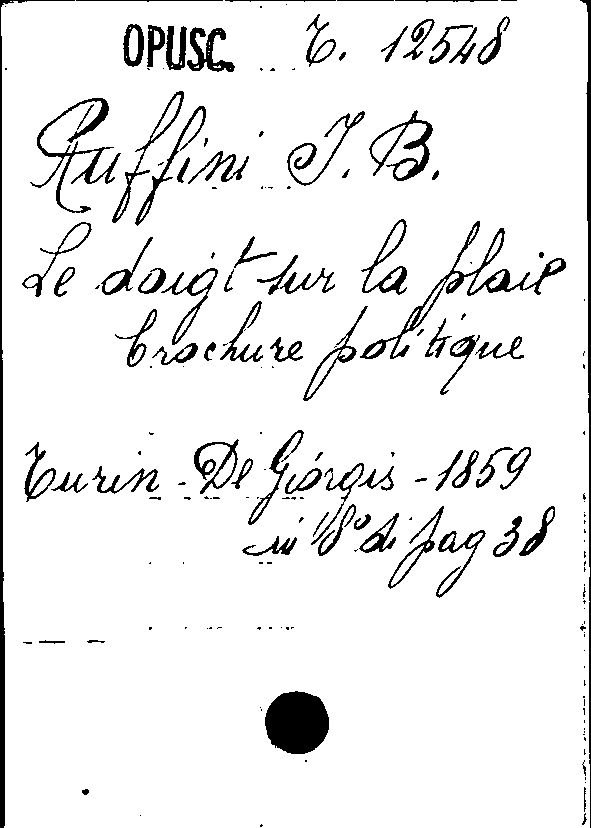 OPUSC. T. 12548
Ruffini J. B.
Le doigt sur la plaie
brochure politique
Turin - De Giorgis - 1859
in 8° di pag 38